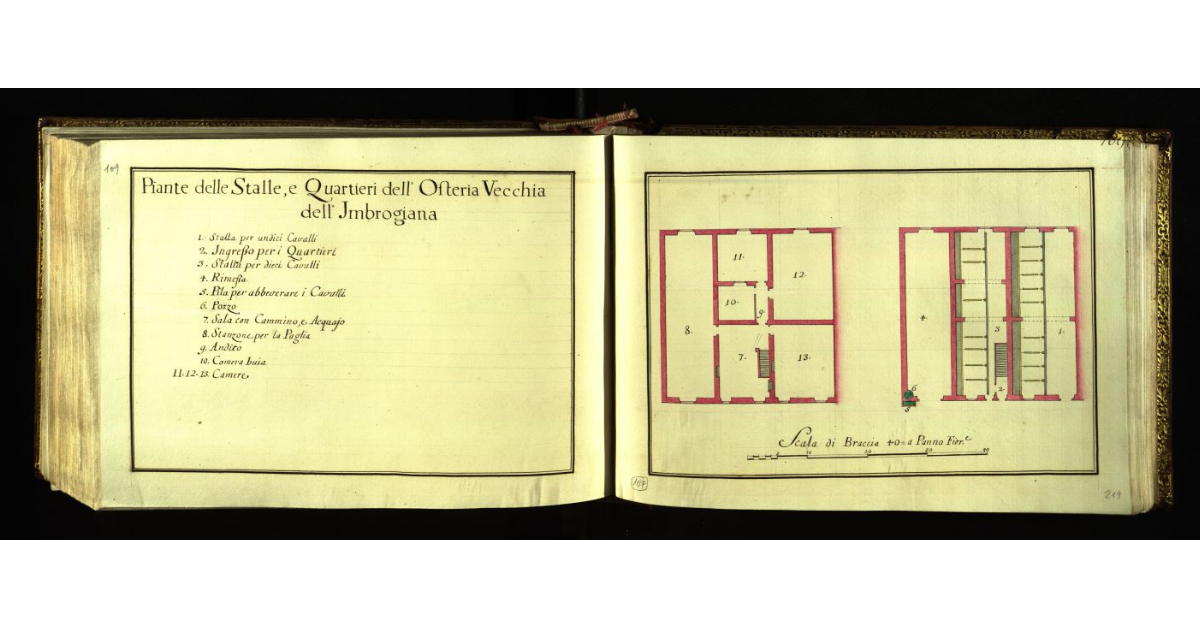 109
Piante delle Stalle, e Quartieri dell' Osteria Vecchia
dell' Jmbrogiana
1. Stalla per undici Cavalli
2. Ingresso per i Quartieri
3. Stalla per dieci Cavalli
4. Rimessa
5. Pila per abbeverare i Cavalli
6. Pozzo
7. Sala con Cammino, e Acquajo
8. Stanzone per la Paglia
9. Andito
10. Camera buia
11. 12. 13. Camere
11.
12.
10.
9.
8.
7.
13.
4.
3
1.
2
6
5
Scala di Braccia 40= a Panno Fior.e
10
20
30
40
107
219